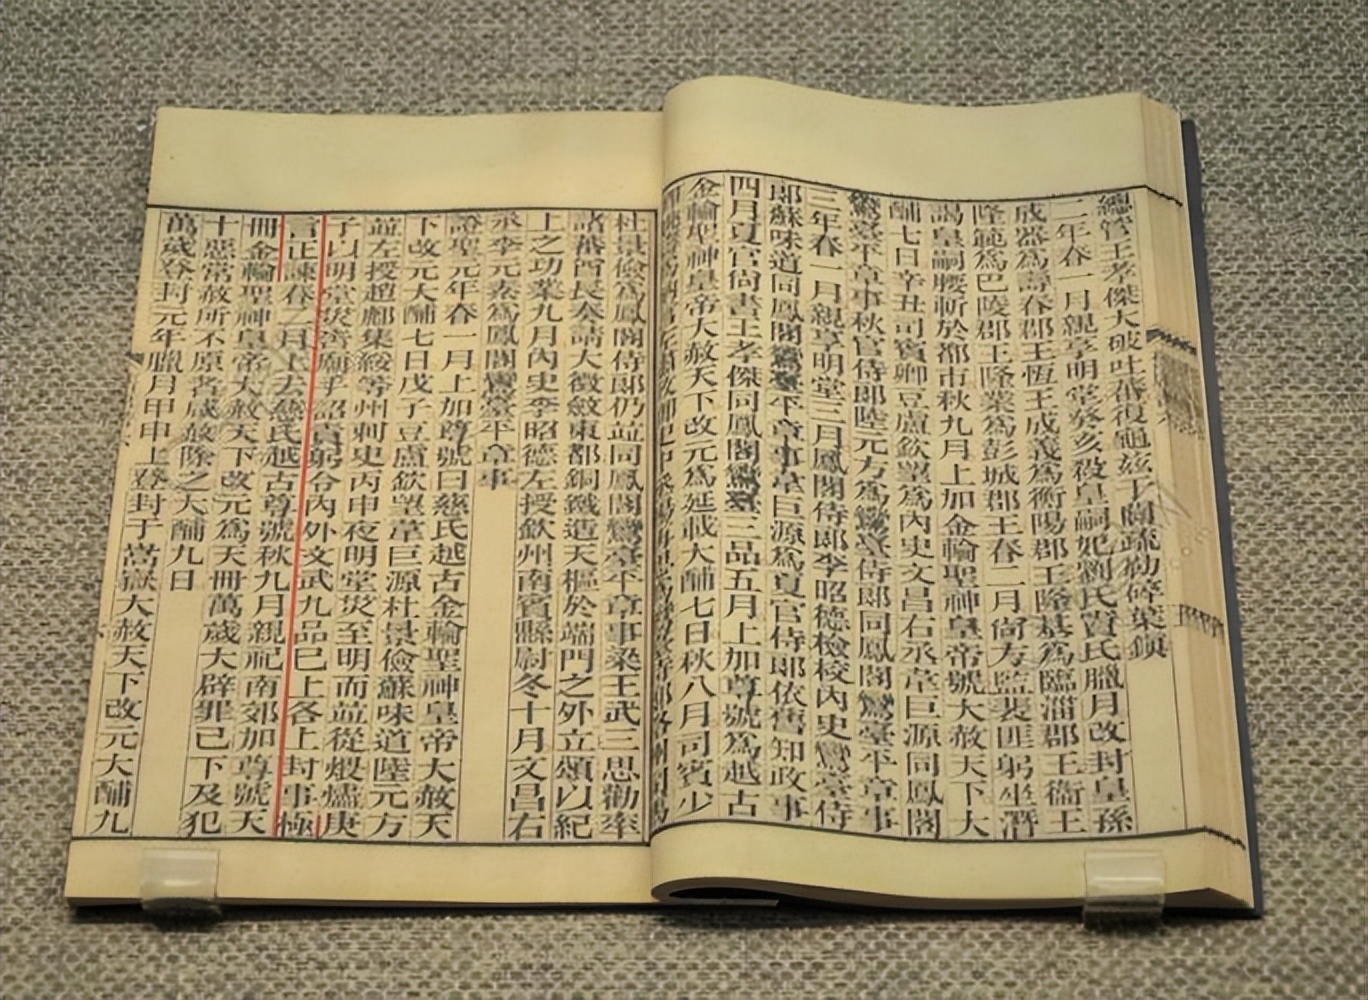 總管王孝傑大破吐蕃復龜兹于闐疏勒碎葉鎮
二年春一月親享明堂癸亥殺皇嗣妃劉氏竇氏臘月改封皇孫
成器為壽春郡王恆王成義為衡陽郡王隆基為臨淄郡王衞王
隆範為巴陵郡王隆業為彭城郡王春二月尚方監裴匪躬坐潛
謁皇嗣腰斬於都市秋九月上加金輪聖神皇帝號大赦天下大
酺七日辛丑司賓卿豆盧欽望為內史文昌右丞韋巨源同鳳閣
鸞臺平章事秋官侍郎陸元方為鸞臺侍郎同鳳閣鸞臺平章事
三年春一月親享明堂三月鳳閣侍郎李昭德檢校內史鸞臺侍
郎蘇味道同鳳閣鸞臺平章事韋巨源為夏官侍郎依舊知政事
四月夏官尚書王孝傑同鳳閣鸞臺三品五月上加尊號為越古
金輪聖神皇帝大赦天下改元為延載大酺七日秋八月司賓少
杜景儉為鳳閣侍郎仍並同鳳閣鸞臺平章事梁王武三思勸率
諸蕃酋長奏請大徵斂東都銅鐵造天樞於端門之外立頌以紀
上之功業九月內史李昭德左授欽州南賓縣尉冬十月文昌右
丞李元素為鳳閣鸞臺平章事
證聖元年春一月上加尊號曰慈氏越古金輪聖神皇帝大赦天
下改元大酺七日戊子豆盧欽望韋巨源杜景儉蘇味道陸元方
並左授趙鄜集綏等州刺史丙申夜明堂災至明而並從煨燼庚
子以明堂災告廟手詔責躬令內外文武九品已上各上封事極
言正諫春二月上去慈氏越古尊號秋九月親祀南郊加尊號天
冊金輪聖神皇帝大赦天下改元為天冊萬歲大辟罪已下及犯
十惡常赦所不原者咸赦除之大酺九日
萬歲登封元年臘月甲申上登封于嵩嶽大赦天下改元大酺九